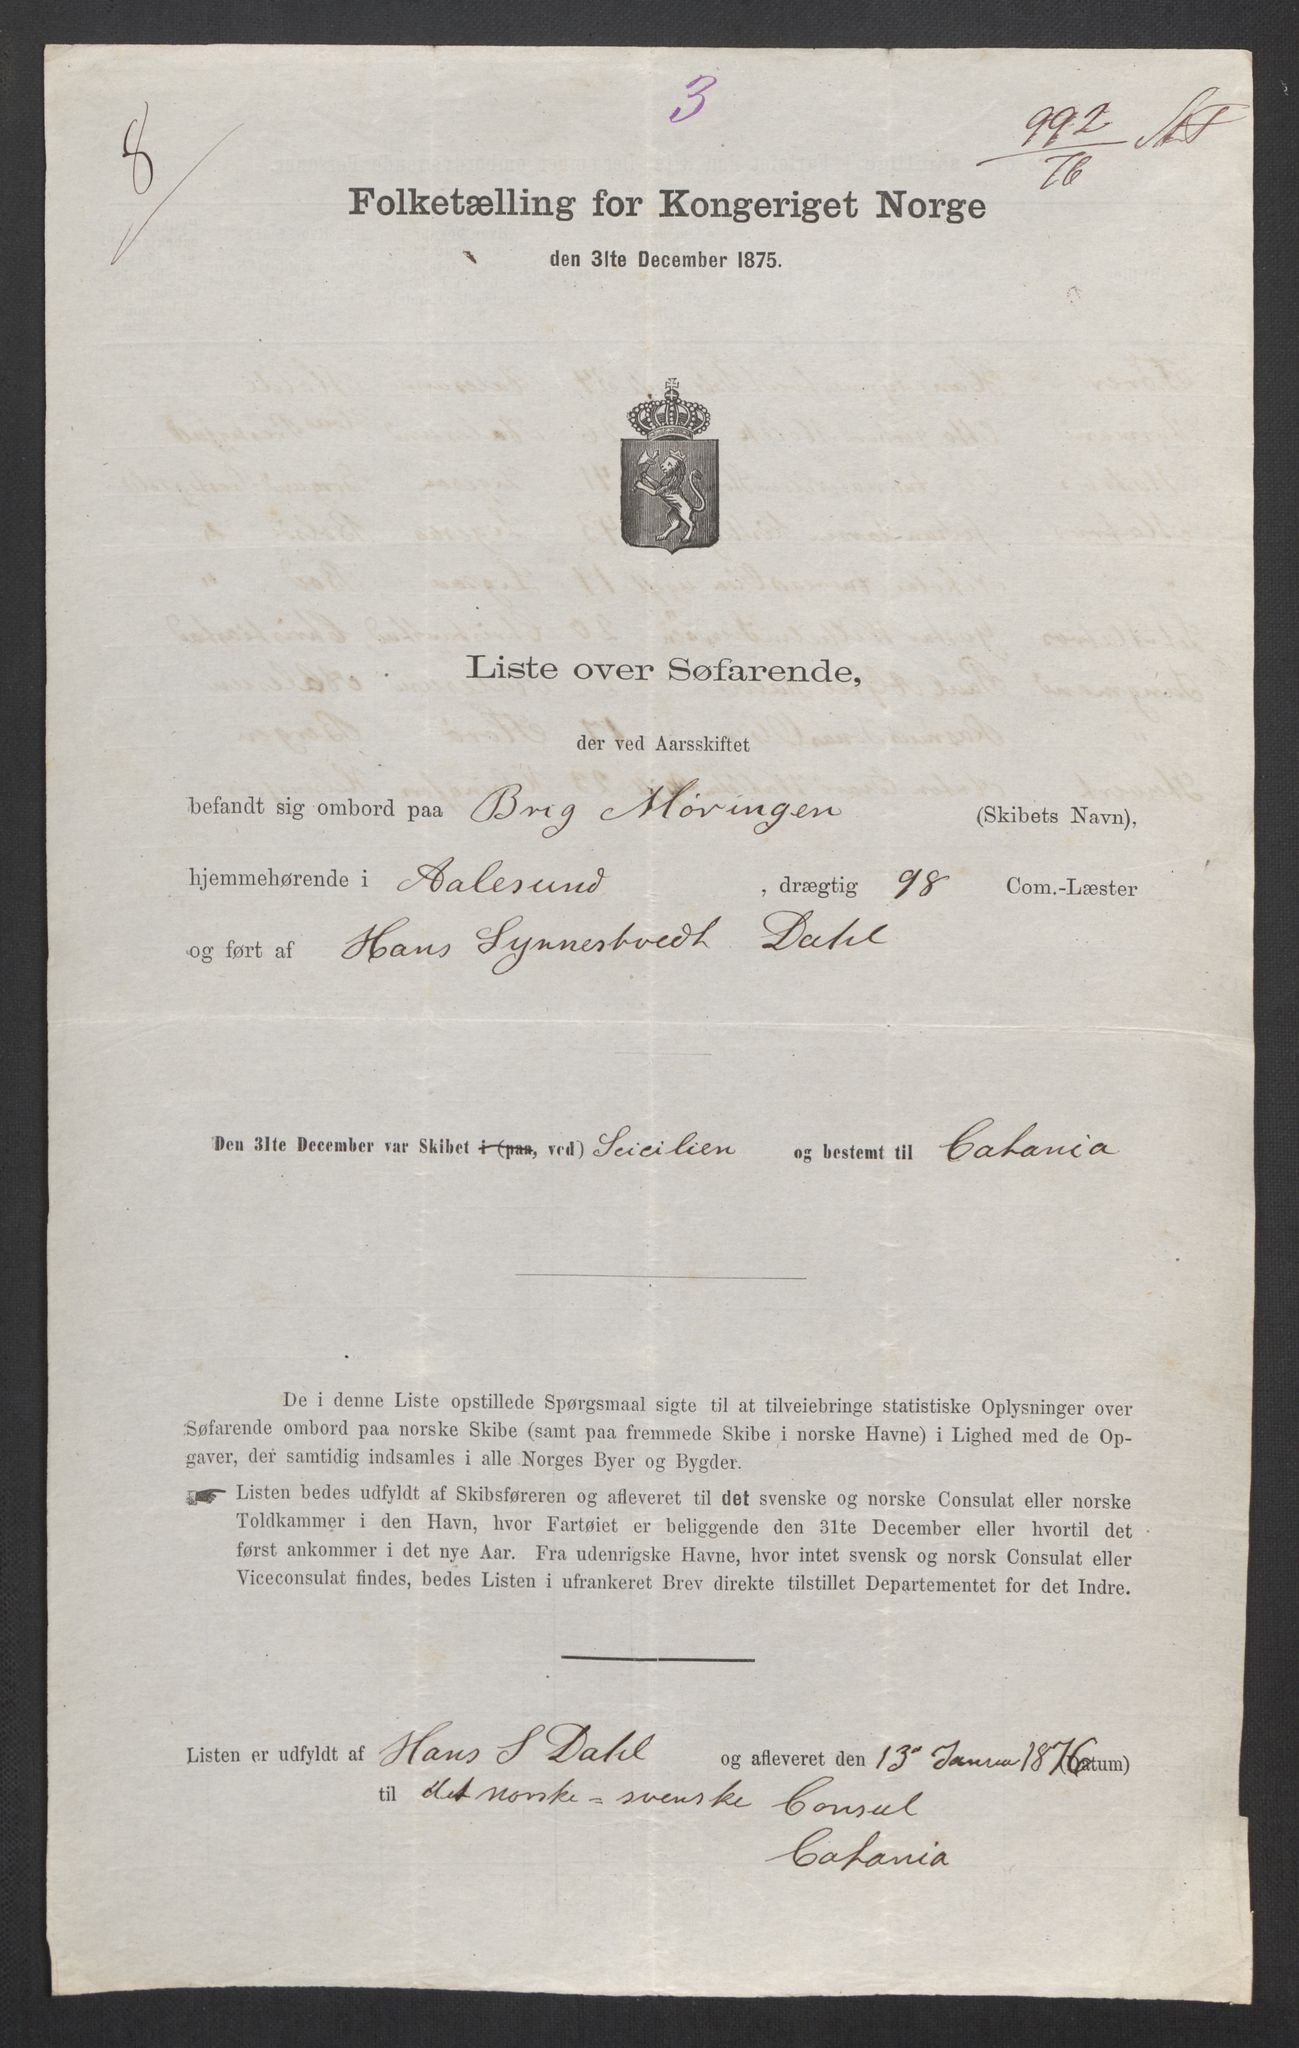 8
3
992
76
Folketælling for Kongeriget Norge
den 31te December 1875.
Liste over Søfarende,
der ved Aarsskiftet
befandt sig ombord paa Brig Møringen (Skibets Navn),
hjemmehørende i Aalesund, drægtig 98 Com.-Læster
og ført af Hans Synnestvedt Dahl
Den 31te December var Skibet i (paa, ved) Scicilien og bestemt til Catania
De i denne Liste opstillede Spørgsmaal sigte til at tilveiebringe statistiske Oplysninger over
Søfarende ombord paa norske Skibe (samt paa fremmede Skibe i norske Havne) i Lighed med de Op-
gaver, der samtidig indsamles i alle Norges Byer og Bygder.
Listen bedes udfyldt af Skibsføreren og afleveret til det svenske og norske Consulat eller norske
Toldkammer i den Havn, hvor Fartøiet er beliggende den 31te December eller hvortil det
først ankommer i det nye Aar. Fra udenrigske Havne, hvor intet svensk og norsk Consulat eller
Viceconsulat findes, bedes Listen i ufrankeret Brev direkte tilstillet Departementet for det Indre.
Listen er udfyldt af Hans S Dahl og afleveret den 13de Januar 1876 (Datum)
til det norske-svenske Consul
Catania